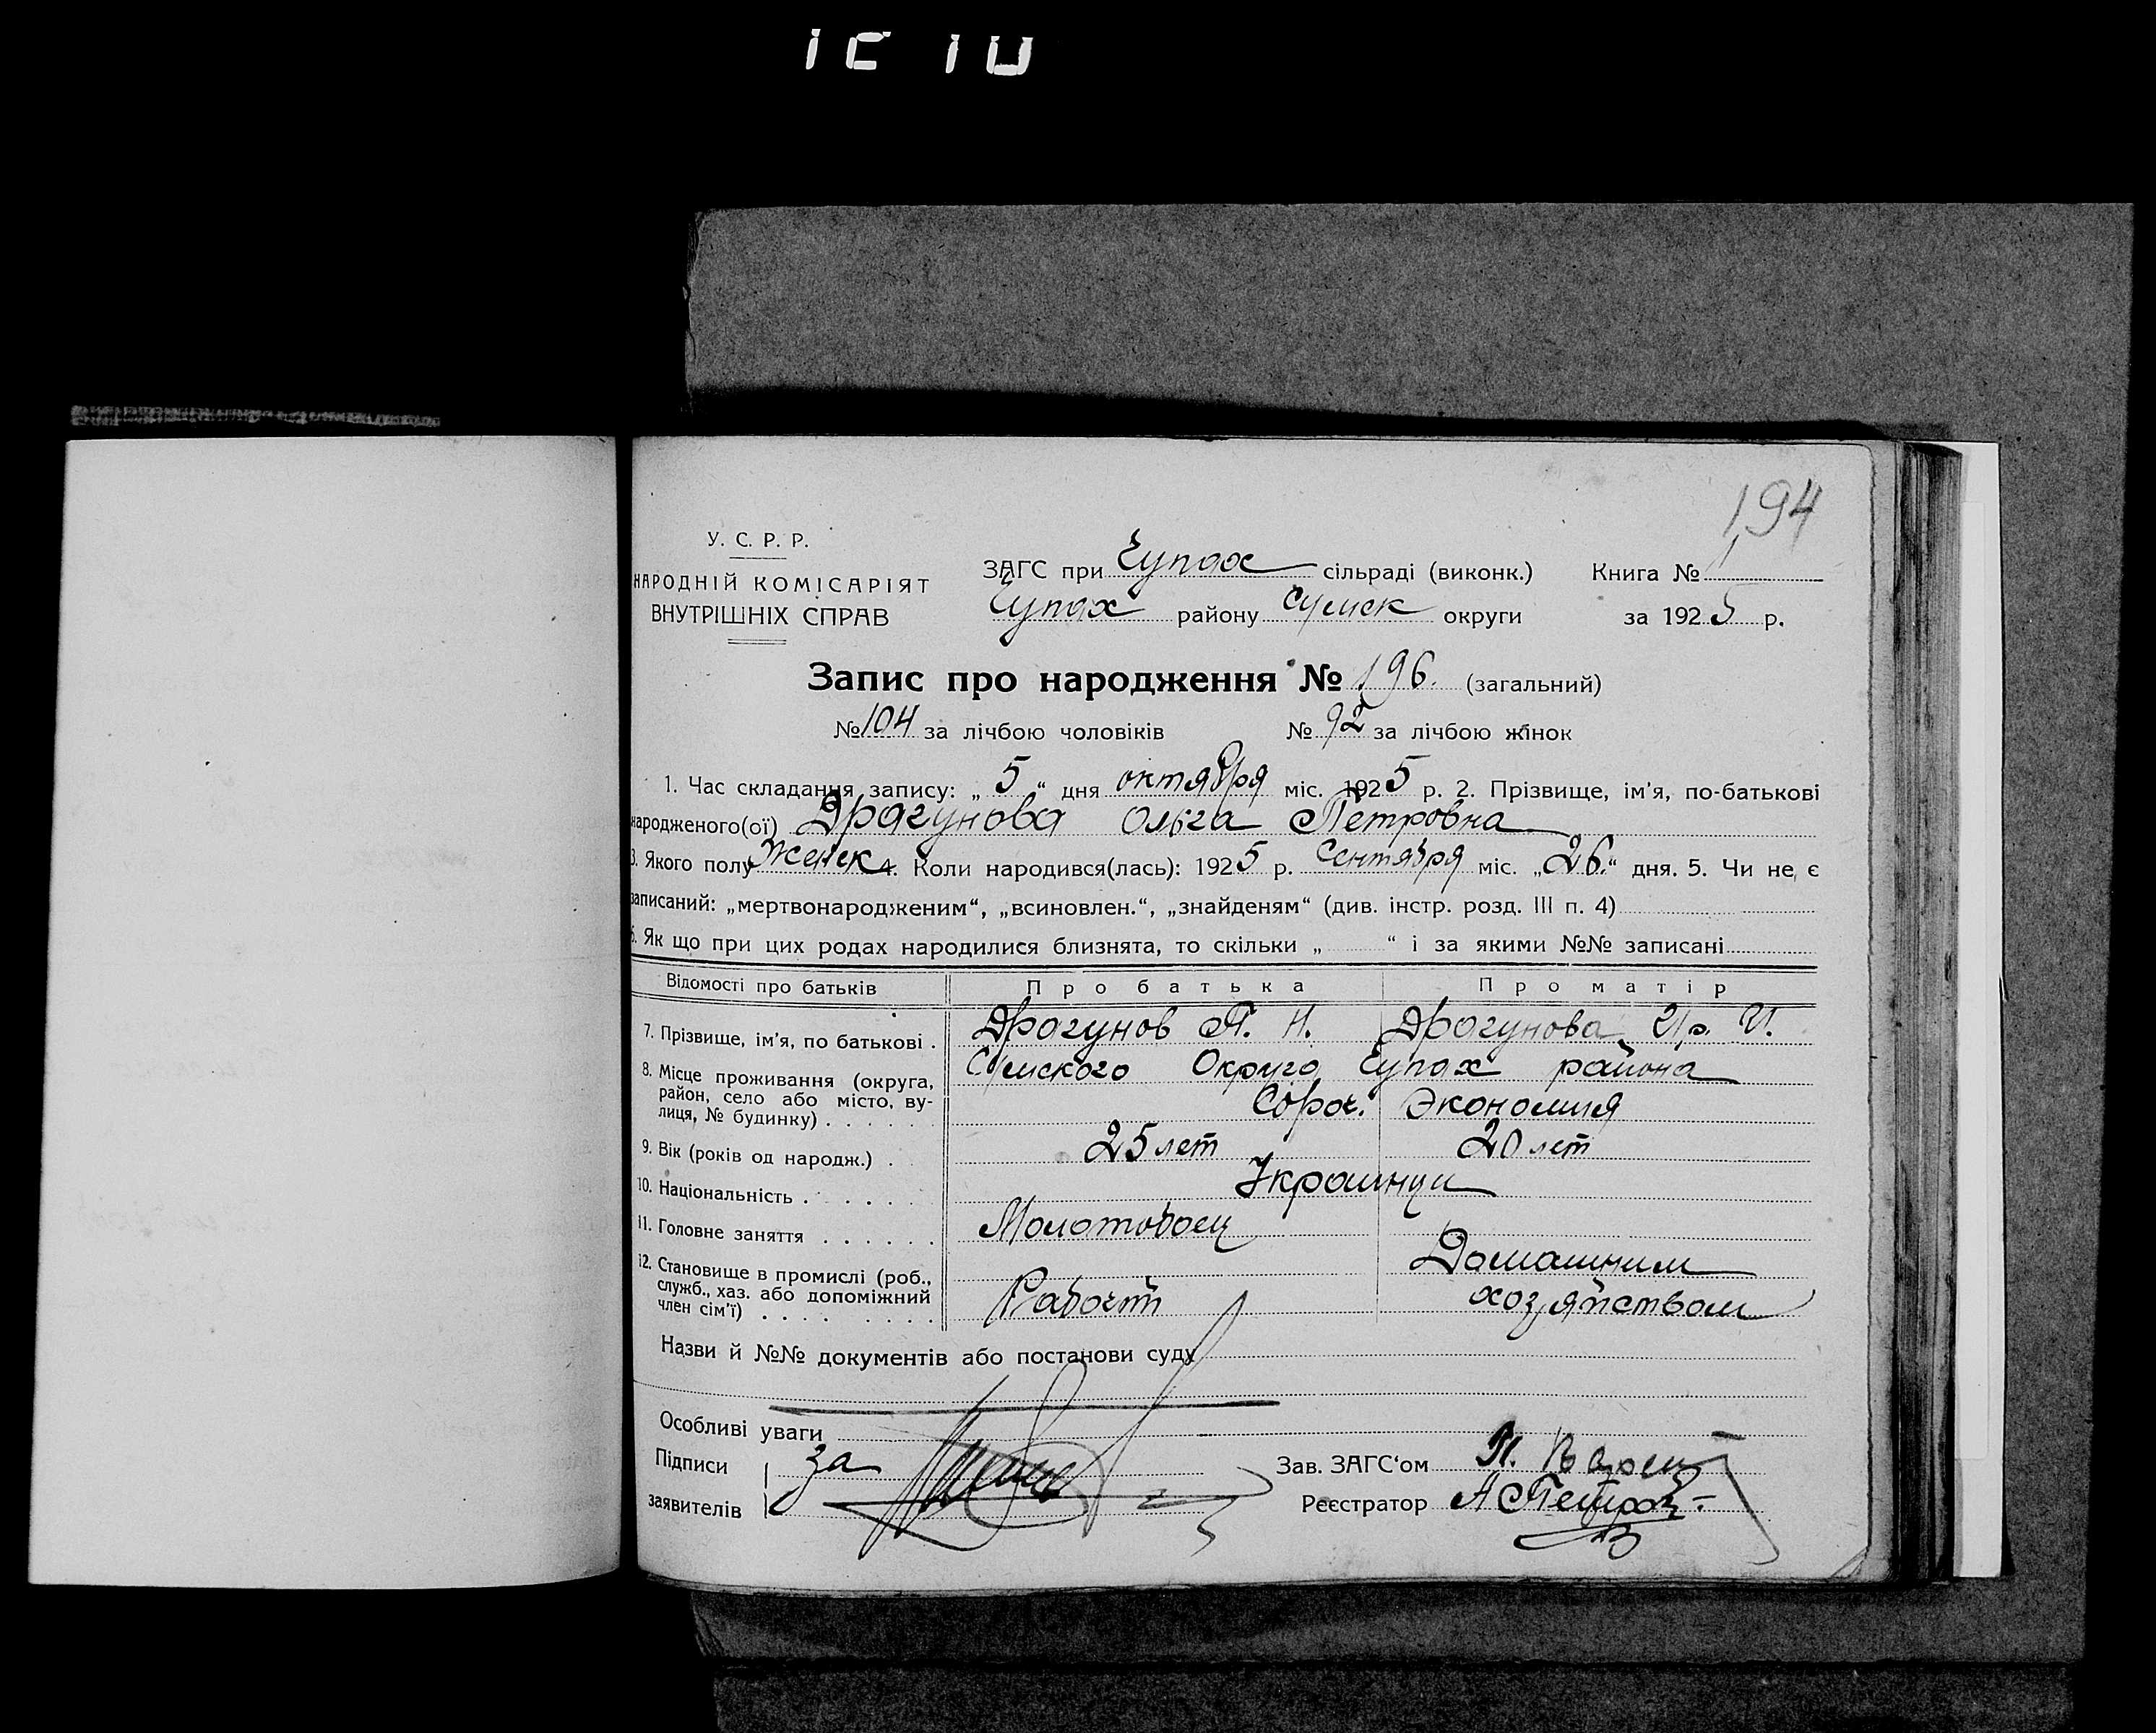 194
У. С. Р. Р.
НАРОДНІЙ КОМІСАРІЯТ
ВНУТРІШНІХ СПРАВ
ЗАГС при Чупах сільраді (виконк.) Книга № 1
Чупах району Сумск округи за 1925 р.
Запис про народження № 196. (загальний)
№ 104 за лічбою чоловіків № 92 за лічбою жінок
1. Час складання запису: „ 5 “ дня октября міс. 1925 р. 2. Прізвище, ім'я, по-батькові
народженого(ої) Драгунова Ольга Петровна
3. Якого полу Женск 4. Коли народився(лась): 1925 р. Сентября міс. „26.“ дня. 5. Чи не є
записаний: „мертвонародженим“, „всиновлен.“, „знайденям“ (див. інстр. розд. III п. 4)
6. Як що при цих родах народилися близнята, то скільки „ “ і за якими №№ записані
Відомості про батьків Про батька Про матір
7. Прізвище, ім'я, по батькові . Драгунов П. Н. Драгунова И.
8. Місце проживання (округа, район, село або місто, вулиця, № будинку) Сумского Округа Чупах района
Сороч. Экономия
9. Вік (років од народж.) . 25 лет 20 лет
10. Національність . Украинци
11. Головне заняття Молотобоец
12. Становище в промислі (роб., служб., хаз. або допоміжний член сім'ї) Рабочий Домашним
хозяйством
Назви й №№ документів або постанови суду
Особливі уваги
Підписи за Зав. ЗАГС'ом
заявителів Реєстратор